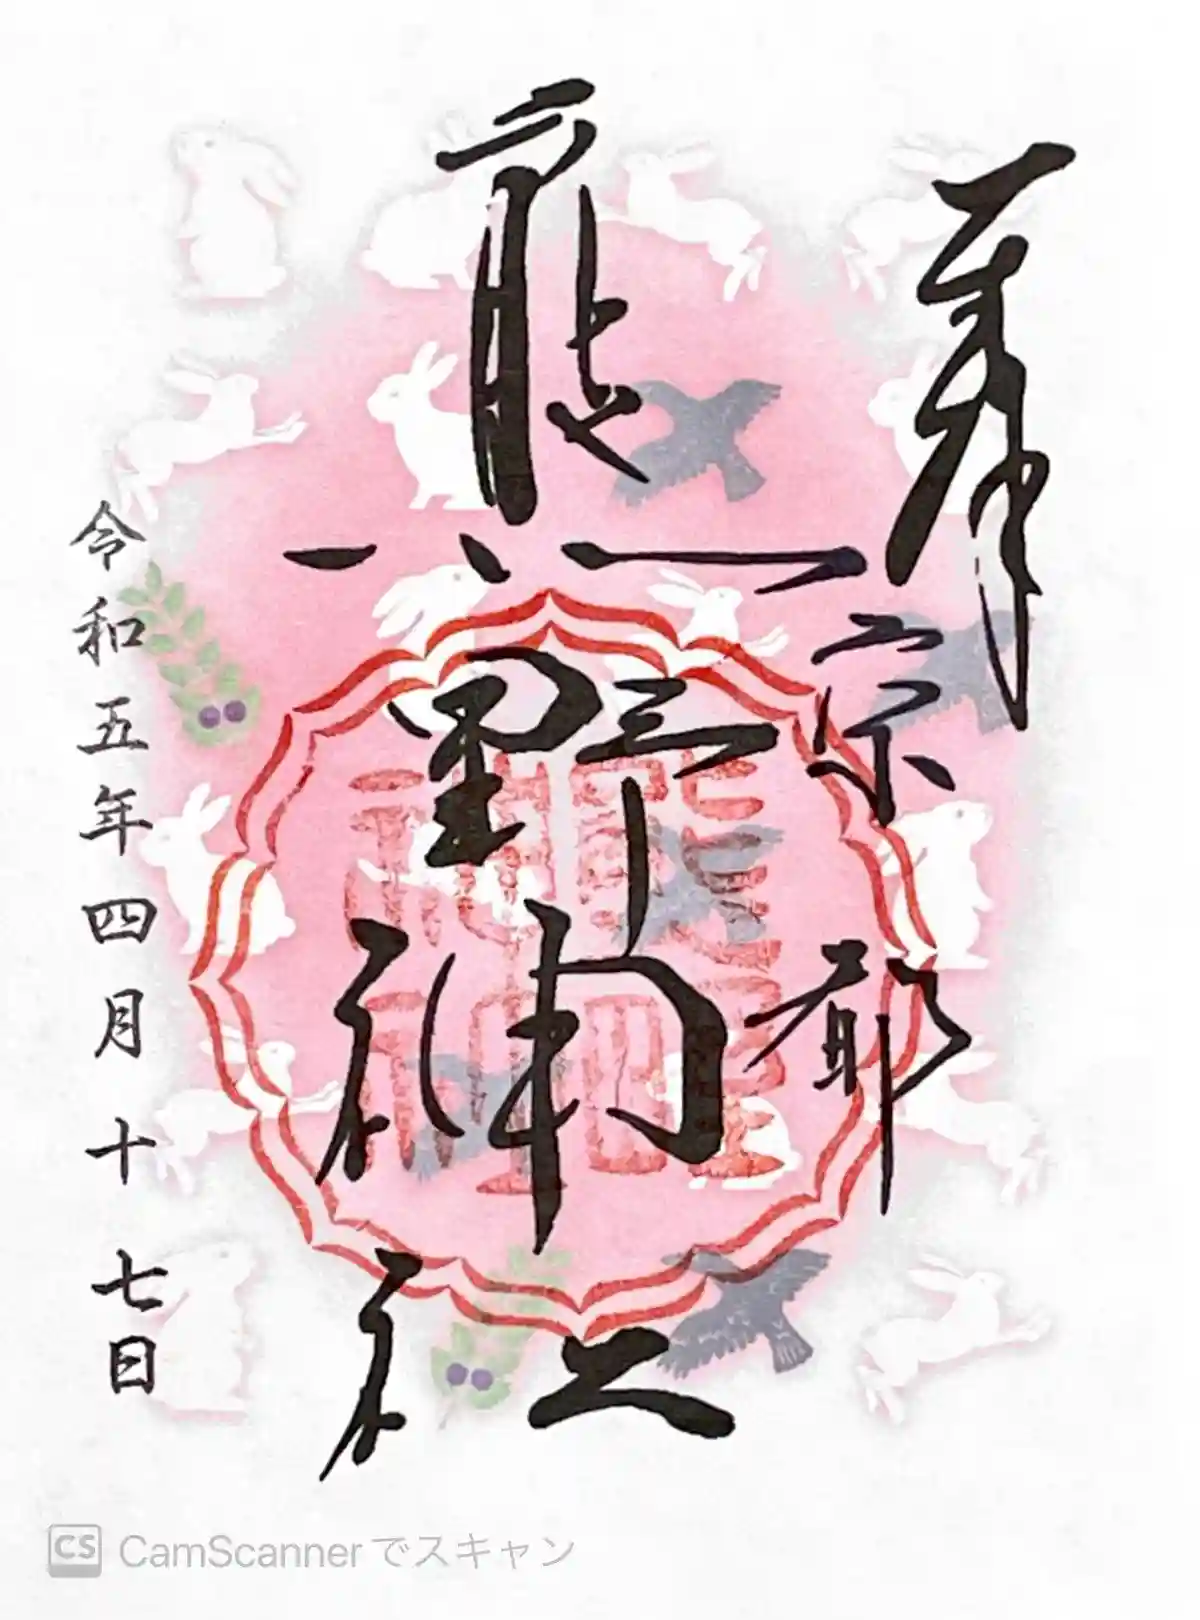 奉拝
京都
熊野神社
令和五年四月十七日
CS CamScannerでスキャン